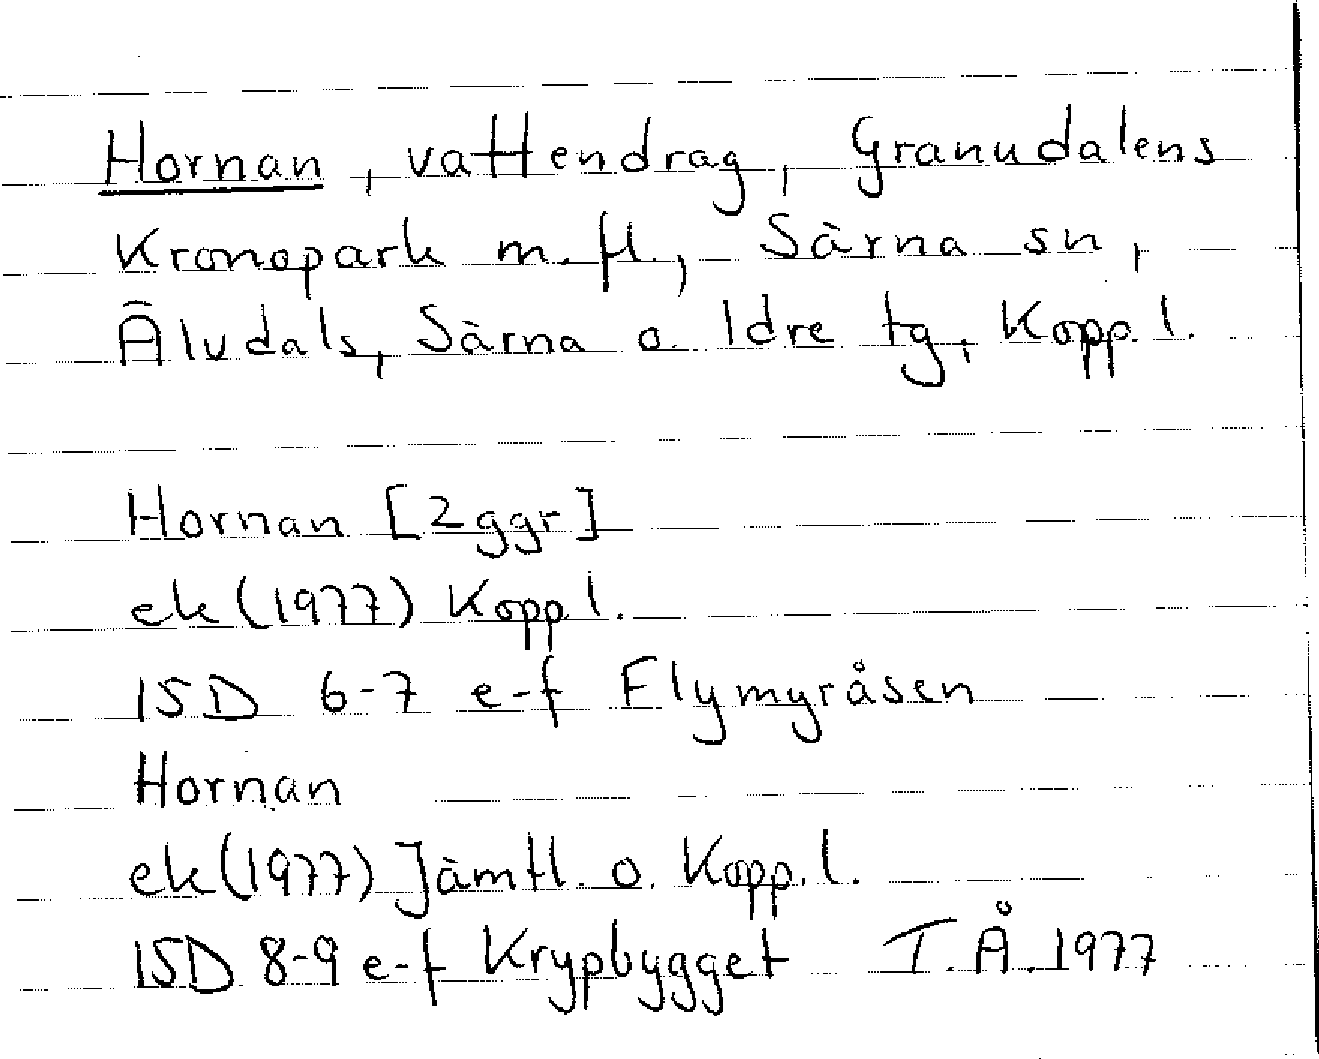 Hornan, vattendrag, Granudalens
Kronopark m.fl., Särna sn,
Älvdals, Särna o. Idre tg, Kopp. l.
Hornan [2 ggr]
ek (1977) Kopp. l.
15D 6-7 e-f Flymyråsen
Hornan
ek (1977) Jämtl. o. Kopp. l.
15D 8-9 e-f Krypbygget T.Å. 1977